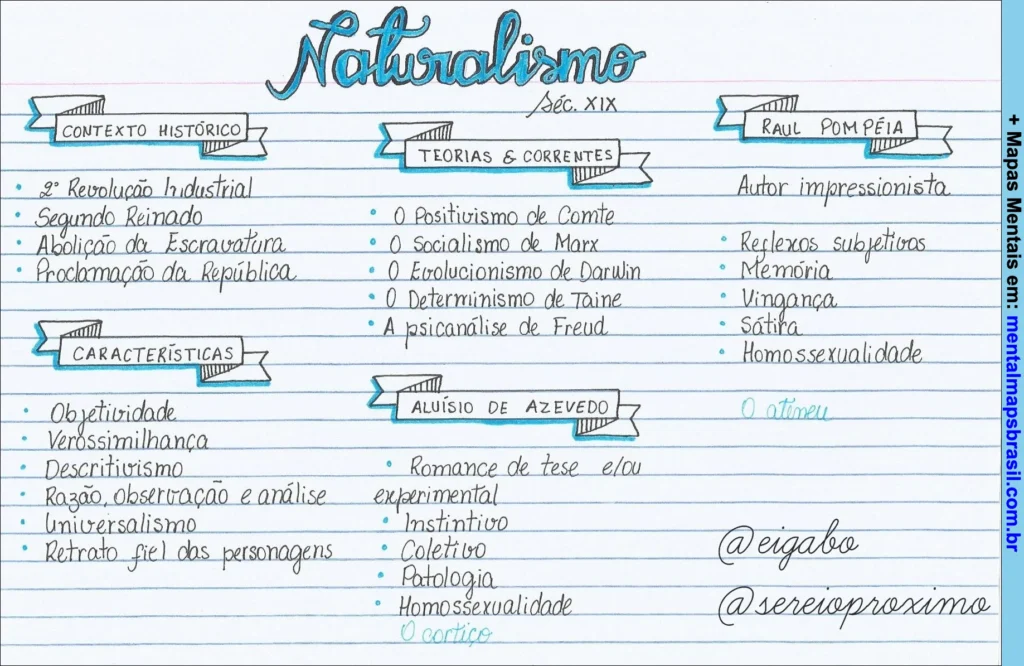 Naturalismo
Séc. XIX
CONTEXTO HISTÓRICO
• 2ª Revolução Industrial
• Segundo Reinado
• Abolição da Escravatura
• Proclamação da República
CARACTERÍSTICAS
• Objetividade
• Verossimilhança
• Descritivismo
• Razão, observação e análise
• Universalismo
• Retrato fiel das personagens
TEORIAS & CORRENTES
• O Positivismo de Comte
• O Socialismo de Marx
• O Evolucionismo de Darwin
• O Determinismo de Taine
• A psicanálise de Freud
ALUÍSIO DE AZEVEDO
• Romance de tese e/ou
experimental
• Instintivo
• Coletivo
• Patologia
• Homossexualidade
O cortiço
RAUL POMPÉIA
Autor impressionista
• Reflexos subjetivos
• Memória
• Vingança
• Sátira
• Homossexualidade
O ateneu
@eigabo
@sereioproximo
+ Mapas Mentais em: mentalmapsbrasil.com.br